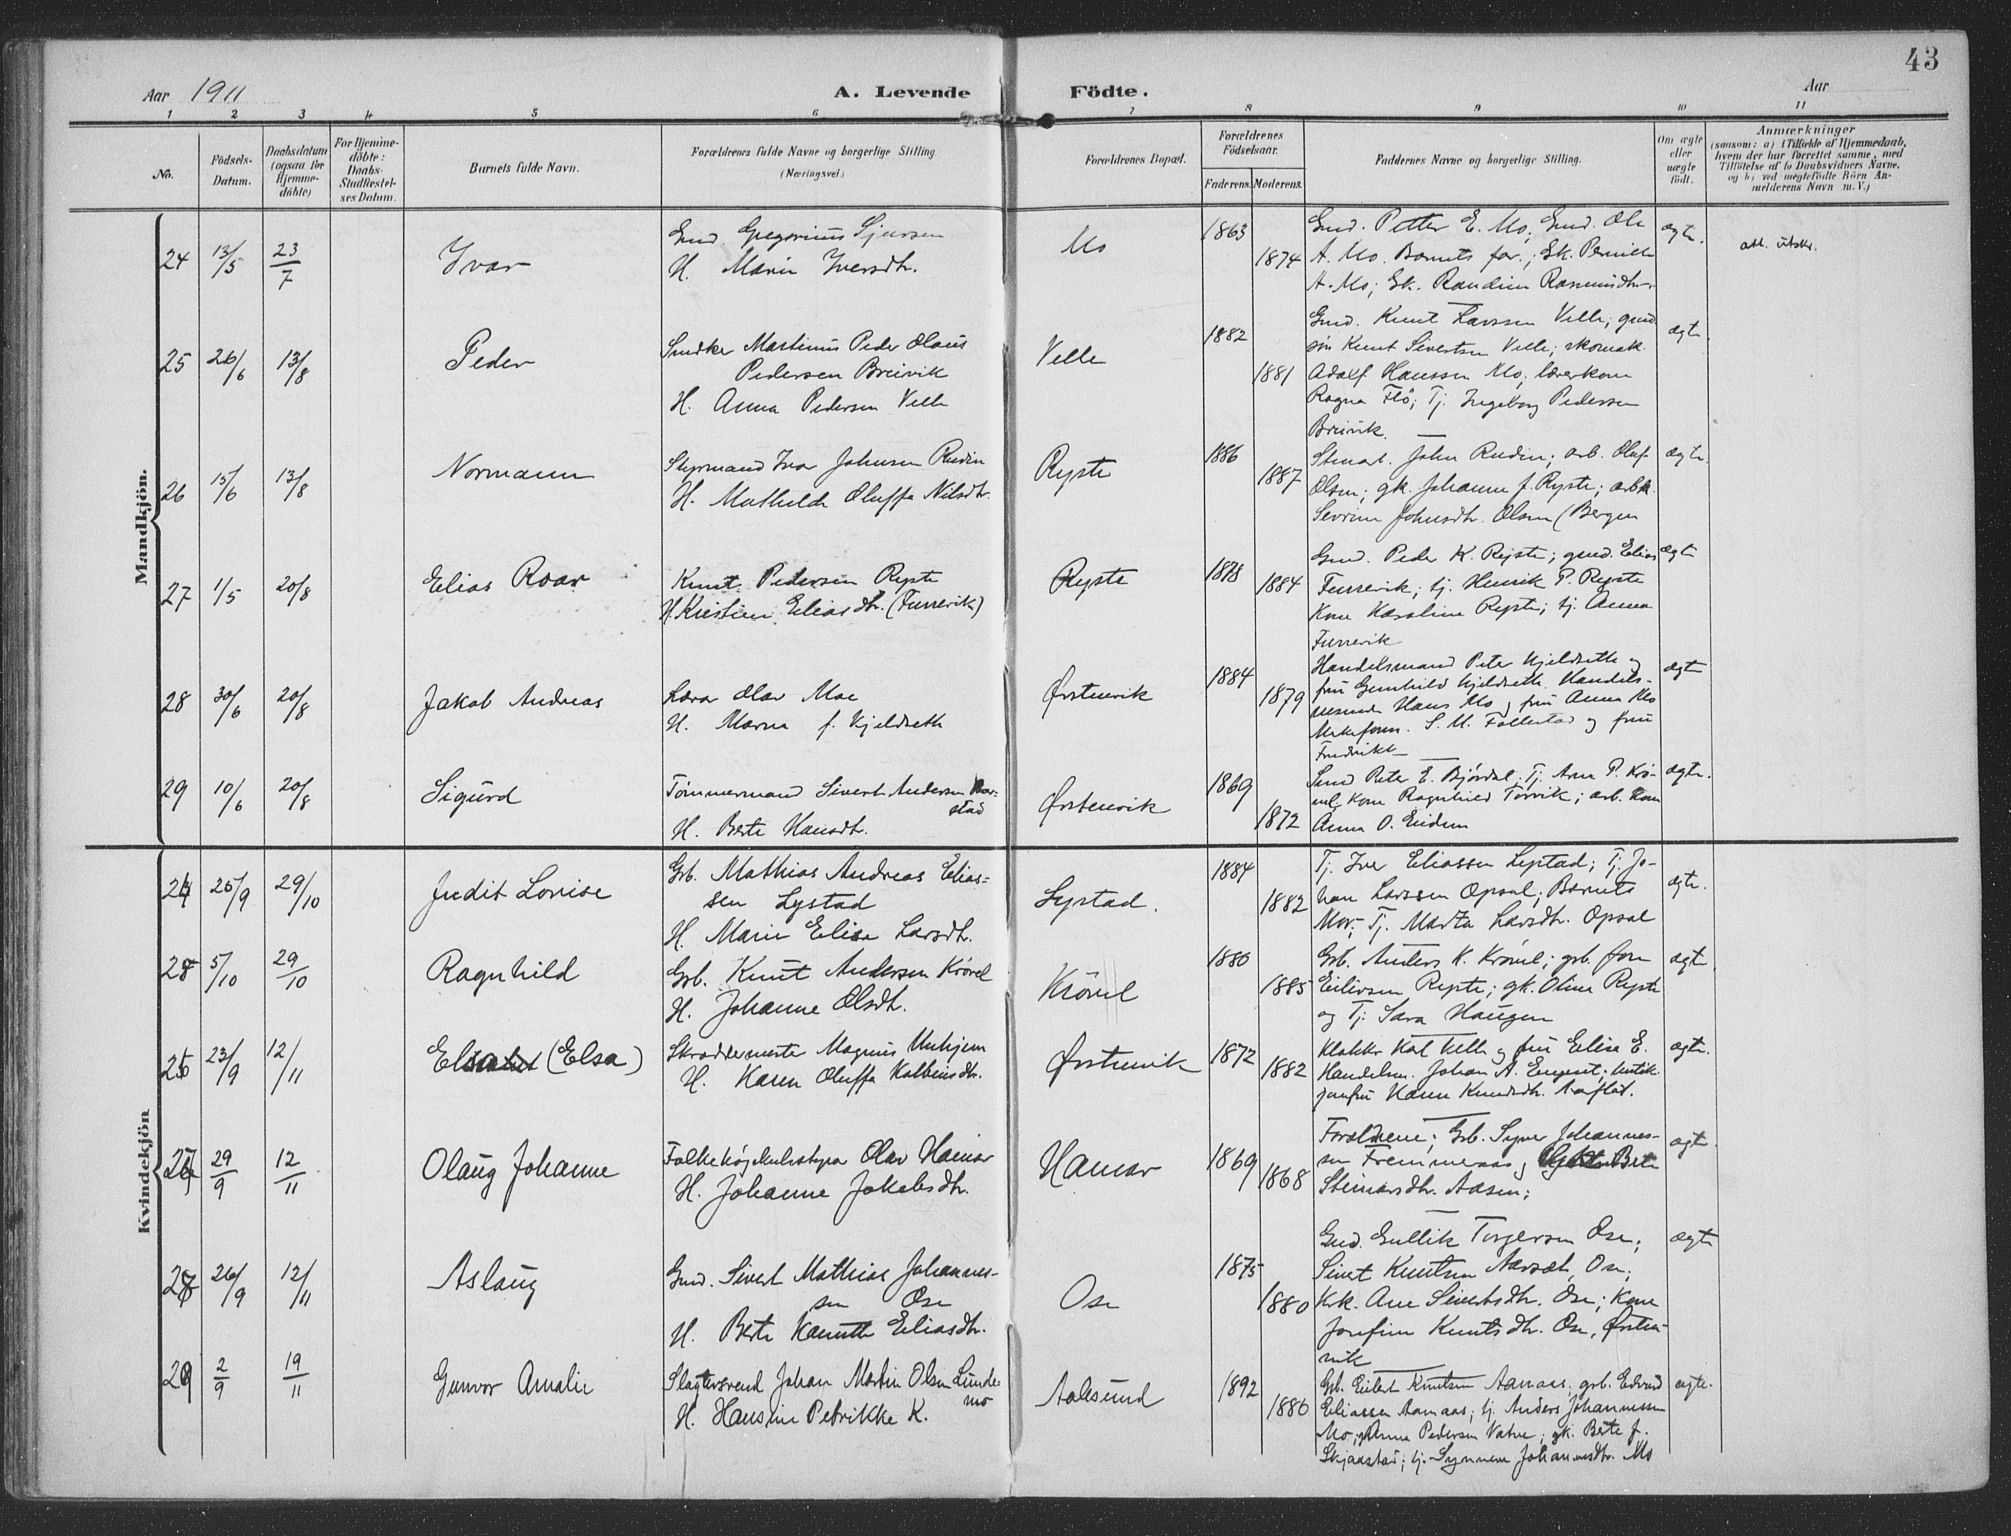 43
Aar 1911
A. Levende Födte.
Aar
1 2 3 4 5 6 7 8 9 10 11
No.
Födsels-Datum.
Daabsdatum (ogsaa for Hjemme-döbte)
For Hjemme-döbte: Daabs-Stadfæstel-ses Datum.
Barnets fulde Navn.
Forældrenes fulde Navne og borgerlige Stilling (Næringsvei.)
Forældrenes Bopæl.
Forældrenes Födselsaar.
Faderens. Moderens.
Faddernes Navne og borgerlige Stilling.
Om ægte eller uægte födt.
Anmærkninger
(saasom: a) i Tilfælde af Hjemmedaab, hvem der har forrettet samme, med Tilföielse af to Daabsvidners Navne, og b) ved uegtefödte Börn Anmelderens Navn m. V.)
Mandkjön.
24 13/5 23/7 Ivar
Gmd. Gregorius Sjursen
H. Marie Iversdtr.
Mo 1863 1874
Gmd. Petter E. Mo; Gmd. Ole
A. Mo. Barnets far.; Gk. Pernille
A. Mo; Gk. Randine Rasmusdtr.
ægte.
att. utskr.
25 26/6 13/8 Peder
Snedker Martinus Peder Olaus
Pedersen Breivik
H. Anna Pedersen Velle
Velle 1882 1881
Gmd. Knut Larssen Velle; gmd
søn Knut Sivertsen Velle; skomak.
Adolf Hanssen Mo; lærerkone
Ragna Flø; Tj. Ingeborg Pedersen
Breivik.
ægte
26 15/6 13/8 Normann
Styrmand Ivar Johnsen Rudin
H. Mathilde Oluffa Nilsdtr.
Ryste 1886 1887
John Rudin; arb. Oluf
Olsen; gk. Johanne f. Ryste; arbk.
Sevrine Johnsdtr. Olsen (Bergen
ægte.
27 1/5 20/8 Elias Roar
Knut Pedersen Ryste
H. Kristine Eliasdtr. (Furrevik)
Ryste 1878 1884
Gmd. Peder K. Ryste; gmd. Elias
Furrevik; tj. Henrik P. Ryste
Kone Karoline Ryste; tj. Anna
Furrevik
ægte
28 30/6 20/8 Jakob Andreas
Lærer Olav Moe
H. Marna f. Kjeldseth
Ørstenvik 1884 1879
Handelsmand Peter Kjeldseth og
fru Gunhild Kjeldseth. Handels-
mand Hans Mo og fru Anna Mo
S. M. Follestad og fru
Fredrikke
ægte
29 10/6 20/8 Sigurd
Tømmermand Sivert Andersen
stad
H. Berte Hansdtr.
Ørstenvik 1869 1872
Gmd Peter E. Bjørdal; Tj. Arne P. Krø-
vel; Kone Ragnhild Torvik; arb. Kone
Anna O. Eidem
ægte.
Kvindekjön
24 25/9 29/10 Judit Lovise
Grb. Mathias Andreas Elias-
sen Lystad
H. Marie Elise Larsdtr.
Lystad. 1884 1882
Tj. Iver Eliassen Lystad; Tj. Jo-
han Larssen Opsal; Barnets
Mor; Tj. Marta Larsdtr. Opsal
ægte.
25 5/10 29/10 Ragnhild
Grb. Knut Andersen Krøvel
H. Johanne Olsdtr.
Krövel 1880 1885
Grb. Anders K. Krövel; grb. Jon
Eilivsen Ryste; gk. Olina Ryste
og Tj. Sara Haugen
ægte.
26 23/9 12/11 (Elsa)
Skræddermester Magnus Unhjem
H. Karen Oluffa Kolbeinsdtr.
Ørstenvik 1872 1882
Klokker Karl Velle og fru Elise E.
Handelsm. Johan A. Engeset; butik-
jomfru Karen Knudsdtr. Aaflot.
ægte.
27 29/9 12/11 Olaug Johanne
Folkehøjskulestyrer Olav Hamar
H. Johanne Jakobsdtr.
Hamar 1869 1868
Forældrene; Grb. Syver Johannes-
sen Fremmeraas og Berte
Steinarsdtr. Aasen;
ægte
28 26/9 12/11 Aslaug
Gmd. Sivert Mathias Johannes-
sen Ose
H. Berte Kanutte Eliasdtr.
Ose 1875 1880
Gmd. Gullik Torgersen Ose;
Sivert Knutsen Aarsæt, Ose;
Krk. Ane Sivertsdtr. Ose; Kone
Josefine Knutsdtr. Ose, Ørsten-
vik
ægte
29 2/9 19/11 Gunvor Amalie
Slagtersvend Johan Martin Olsen Lunde-
mo
H. Hansine Petrikke K.
Aalesund 1892 1886
Grb. Eilert Knutsen Aamaas; grb. Edvard
Eliassen Aamaas; tj. Anders Johannessen
Mo; Anna Pedersen Vatne; gk. Berte f.
Skjaastad; tj. Synnøve Johannesdtr. Mo
ægte.